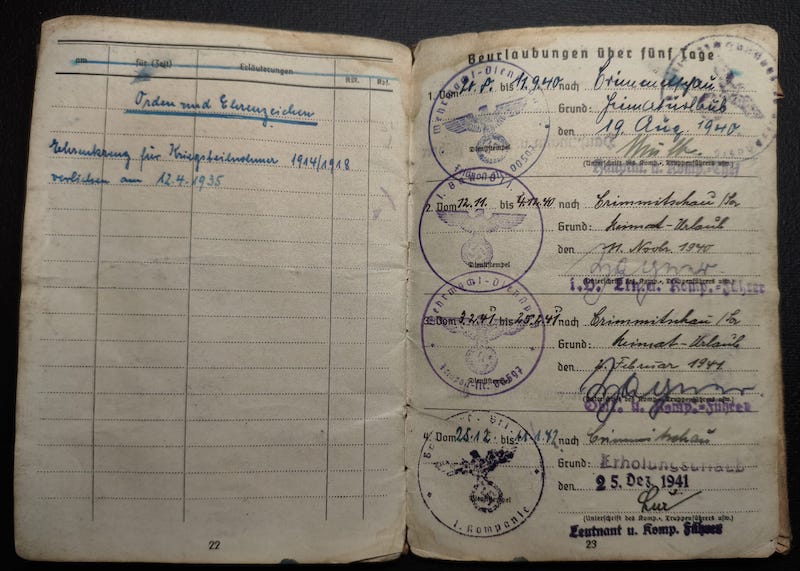 am für (Zeit) Erläuterungen
Orden und Ehrenzeichen
Ehrenkreuz für Kriegsteilnehmer 1914/1918
verliehen am 12.4.1935
22
Beurlaubungen über fünf Tage
1. Vom bis 12.9.40 nach Crimmitschau
Grund: Heimaturlaub
den 19. Aug 1940
Dienststempel
(Unterschrift des Komp.-,
Hauptm. u. Komp.-Chef
2. Vom 12.11. bis 4.12.40 nach Crimmitschau /Sa
Grund: Heimat-Urlaub
den 11. Novbr. 1940
Dienststempel
(Unterschrift des Komp.-, Truppenführers usw.)
i.V. Ltn. u. Komp.-Führer
3. Vom 3.2.41 bis 25.2.41 nach Crimmitschau /Sa
Grund: Heimat-Urlaub
den Februar 1941
Dienststempel
(Unterschrift des Komp.-, Truppenführers usw.)
u. Komp.-Führer
4. Vom 25.12. bis 11.1.42 nach Crimmitschau
Grund: Erholungsurlaub
den 25. Dez. 1941
Dienststempel
1. Kompanie
(Unterschrift des Komp.-, Truppenführers usw.)
Leutnant u. Komp. Führer
23